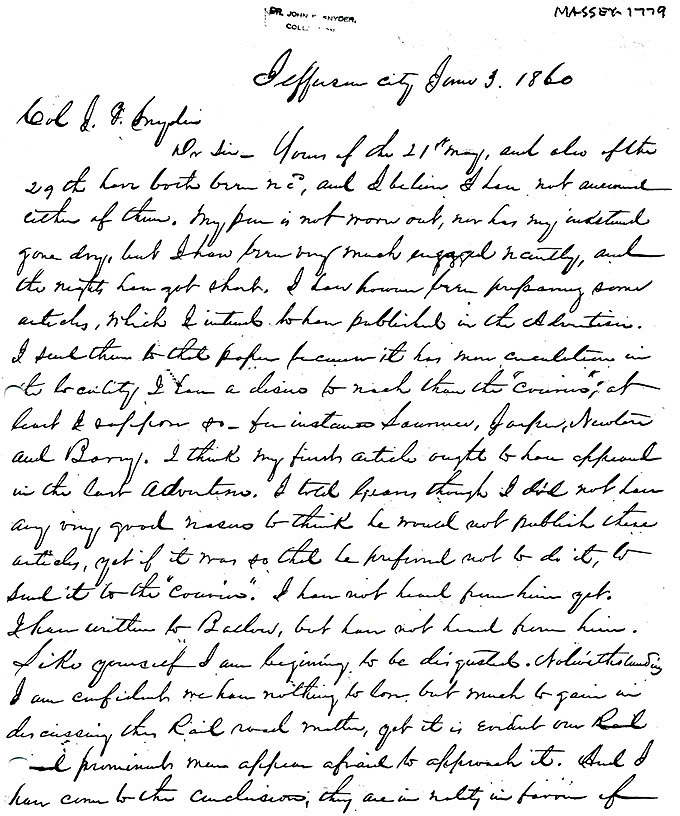 DR. JOHN F. SNYDER.
COLLECTION
MASSEY 1779
Jefferson city June 3. 1860
Col J. F. Snyder
Dr Sir - Yours of the 21st May, and also of the
29th have both been recd, and I believe I have not answered
either of them. My pen is not worn out, nor has my inkstand
gone dry, but I have been very much engaged recently, and
the nights have got short. I have however been preparing some
articles, which I intend to have published in the Advertiser.
I send them to that paper because it has more circulation in
the locality I have a desire to reach than the "courier", at
least I suppose so - for instance Lawrence, Jasper, Newton
and Barry. I think my first article ought to have appeared
in the last Advertiser. I told though I did not have
any very good reason to think he would not publish these
articles, yet if it was so that he preferred not to do it, to
send it to the "Courier". I have not heard from him yet.
I have written to Barlow, but have not heard from him.
Like yourself I am begining to be disgusted. Notwithstanding
I am confident we have nothing to lose but much to gain in
discussing this Rail road matter, yet it is evident our
prominent men appear afraid to approach it. And I
have come to the conclusion, they are in reality in favor of